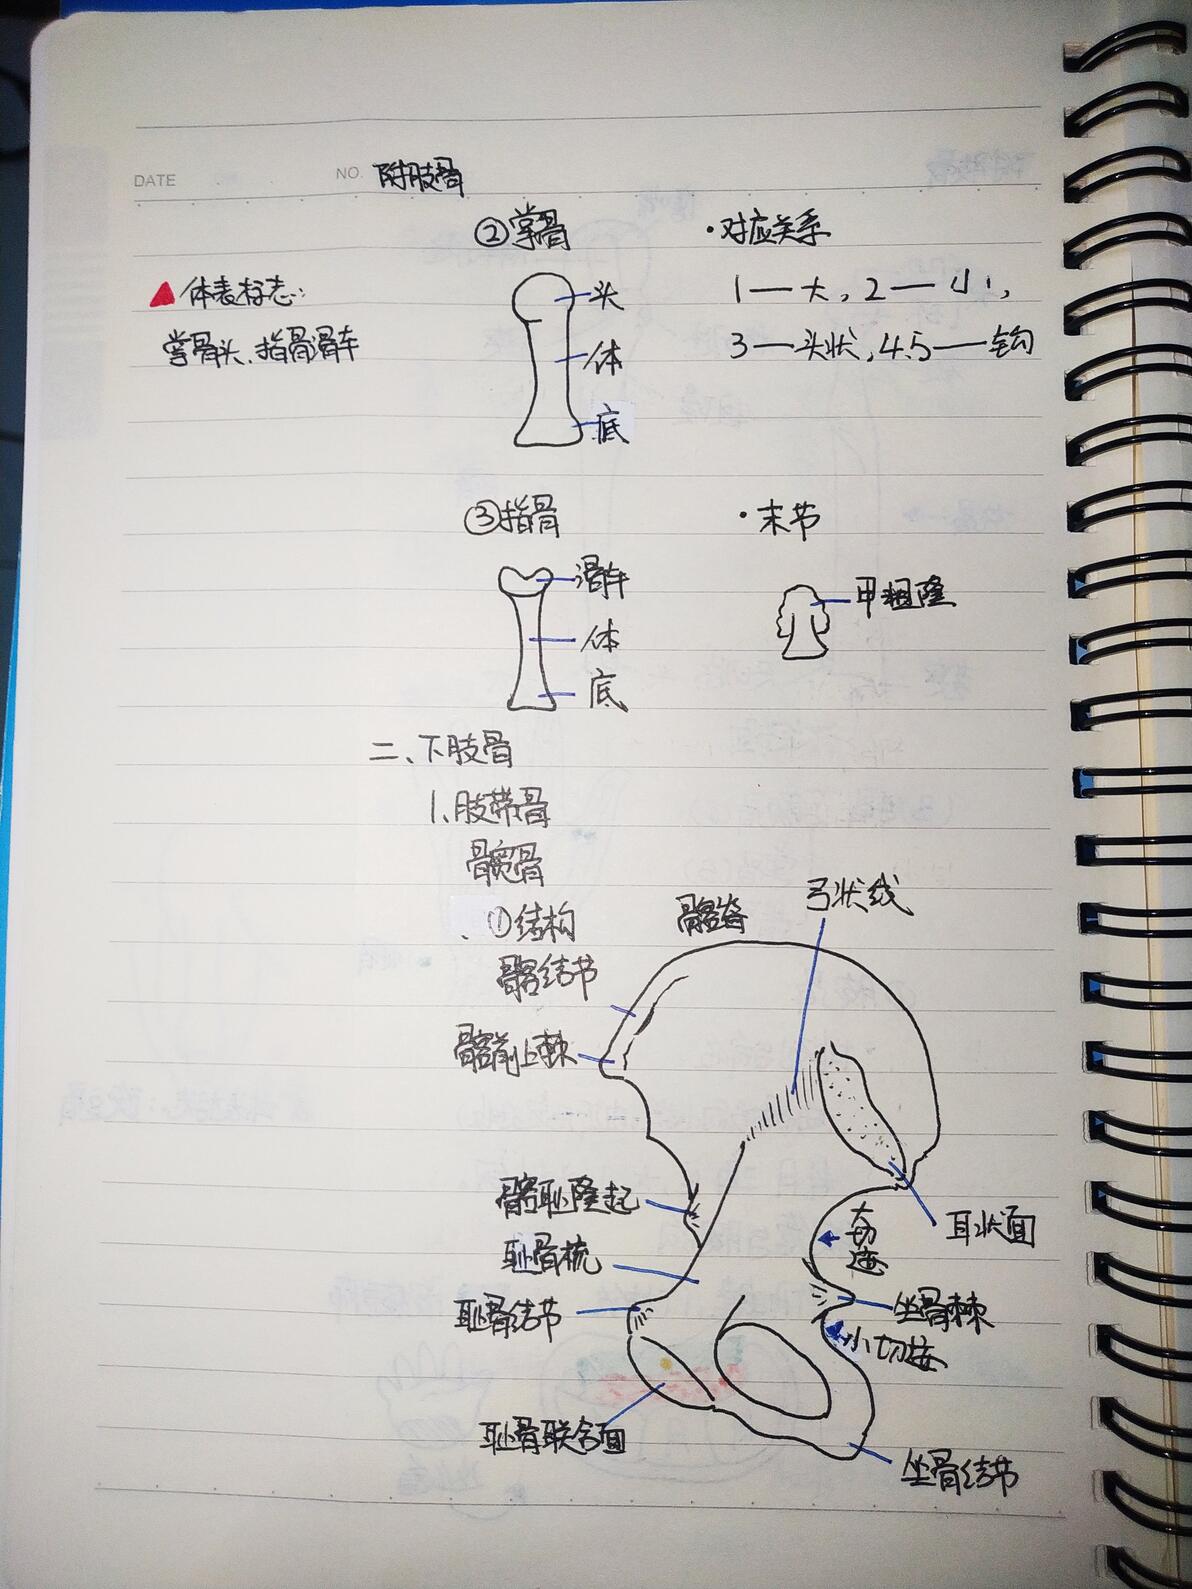 DATE NO. 附肢骨
②掌骨 ·对应关系
▲体表标志:
掌骨头、指骨滑车
头
体
底
1—大,2—小,
3—头状,4.5—钩
③指骨 ·末节
滑车
体
底
甲粗隆
二、下肢骨
1、肢带骨
髋骨
①结构
髂嵴
弓状线
髂结节
髂前上棘
髂耻隆起
耻骨梳
耻骨结节
耻骨联合面
耳状面
大切迹
坐骨棘
小切迹
坐骨结节